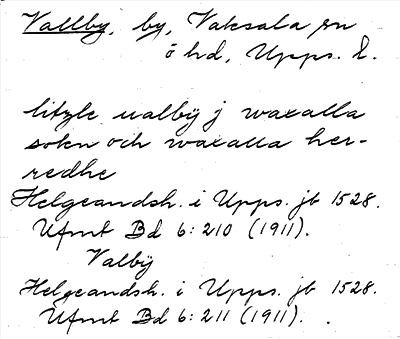 Vallby, by, Vaksala sn
ö hd, Upps. l.
litzle ualbÿ j waxalla
sokn och waxalla her-
redhe
Helgeandsh. i Upps. jb 1528.
Ufmt Bd 6:210 (1911).
Valbÿ
Helgeandsh. i Upps. jb 1528.
Ufmt Bd 6:211 (1911).